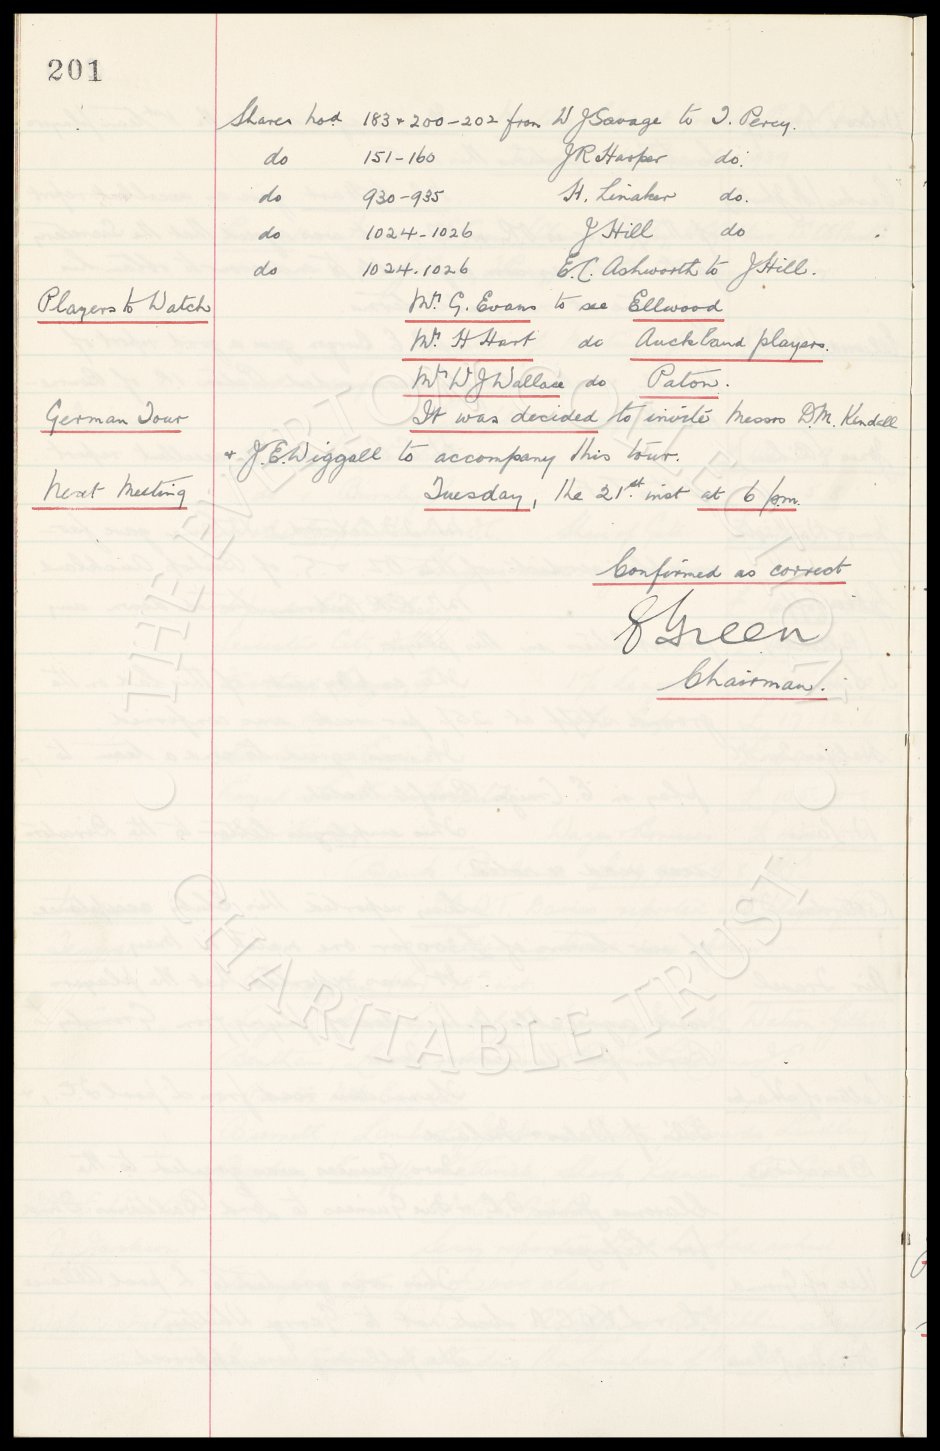 201
Shares nos. 183 & 200-202 from W J Savage to T. Percy.
do 151-160 J R Harper do.
do 930-935 H. Linaker do.
do 1024-1026 J Hill do
do 1024.1026 E.C. Ashworth to J Hill.
Players to Watch Mr. G. Evans to see Ellwood
Mr. H Hart do Auckland players.
Mr. W J Wallace do Paton.
German Tour It was decided to invite Messrs D.M. Kendall
& J.E. Wiggall to accompany this tour.
Next Meeting Tuesday, the 21st. inst at 6 p.m.
Confirmed as correct
Green
Chairman.
THE EVERTON COLLECTION
CHARITABLE TRUST